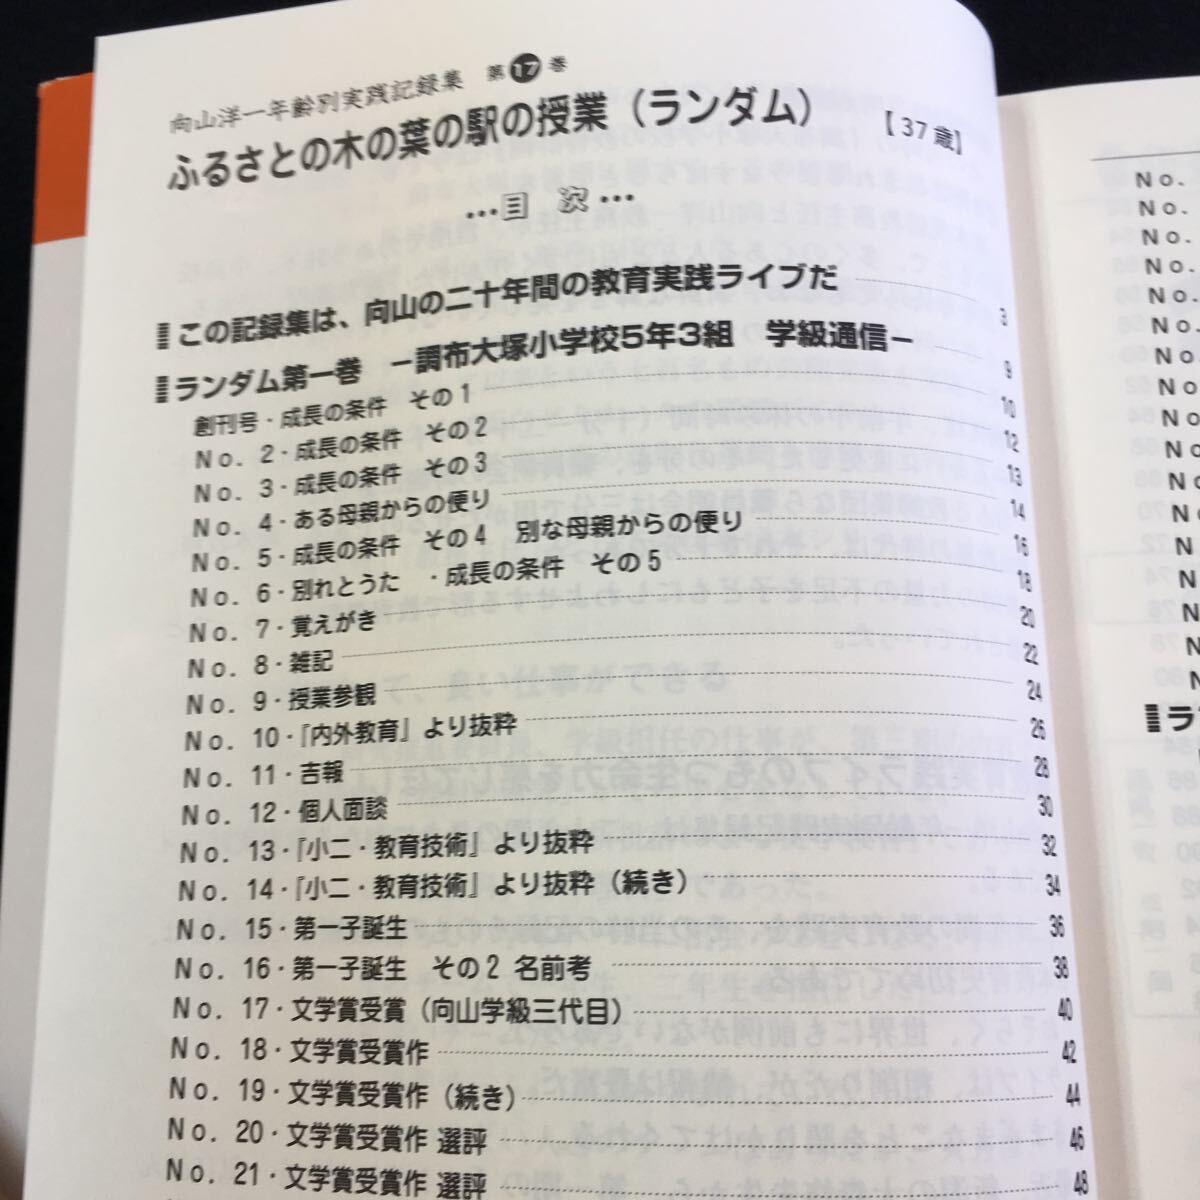 向山洋一年齢別実践記録集 第17巻
ふるさとの木の葉の駅の授業（ランダム）【37歳】
…目 次…
この記録集は、向山の二十年間の教育実践ライブだ 3
ランダム第一巻 －調布大塚小学校5年3組 学級通信－ 9
創刊号・成長の条件 その1 10
No. 2・成長の条件 その2 12
No. 3・成長の条件 その3 13
No. 4・ある母親からの便り 14
No. 5・成長の条件 その4 別な母親からの便り 16
No. 6・別れとうた ・成長の条件 その5 18
No. 7・覚えがき 20
No. 8・雑記 22
No. 9・授業参観 24
No. 10・『内外教育』より抜粋 26
No. 11・吉報 28
No. 12・個人面談 30
No. 13・『小二・教育技術』より抜粋 32
No. 14・『小二・教育技術』より抜粋（続き） 34
No. 15・第一子誕生 36
No. 16・第一子誕生 その2 名前考 38
No. 17・文学賞受賞（向山学級三代目） 40
No. 18・文学賞受賞作 42
No. 19・文学賞受賞作（続き） 44
No. 20・文学賞受賞作 選評 46
No. 21・文学賞受賞作 選評 48
No.
No.
No.
No.
No.
No.
No.
No.
No.
No.
No
No
N
N
N
N
N
ラ